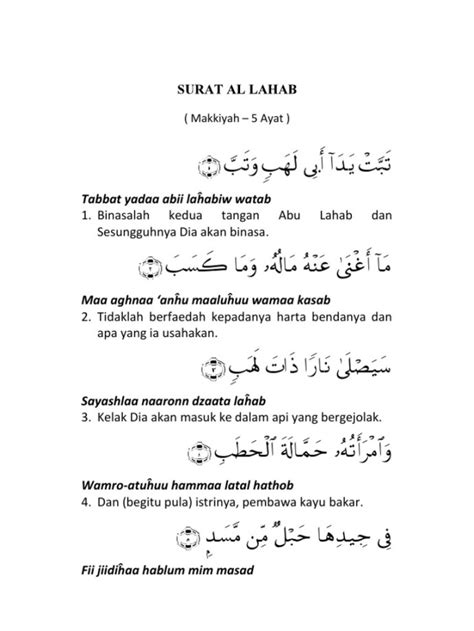 SURAT AL LAHAB
( Makkiyah – 5 Ayat )
تَبَّتْ يَدَآ أَبِى لَهَبٍ وَتَبَّ ۝١
Tabbat yadaa abii laĥabiw watab
1. Binasalah kedua tangan Abu Lahab dan
Sesungguhnya Dia akan binasa.
مَآ أَغْنَىٰ عَنْهُ مَالُهُۥ وَمَا كَسَبَ ۝٢
Maa aghnaa ‘anĥu maaluĥuu wamaa kasab
2. Tidaklah berfaedah kepadanya harta bendanya dan
apa yang ia usahakan.
سَيَصْلَىٰ نَارًا ذَاتَ لَهَبٍ ۝٣
Sayashlaa naaronn dzaata laĥab
3. Kelak Dia akan masuk ke dalam api yang bergejolak.
وَٱمْرَأَتُهُۥ حَمَّالَةَ ٱلْحَطَبِ ۝٤
Wamro-atuĥuu hammaa latal hathob
4. Dan (begitu pula) istrinya, pembawa kayu bakar.
فِى جِيدِهَا حَبْلٌ مِّن مَّسَدٍۭ ۝٥
Fii jiidiĥaa hablum mim masad